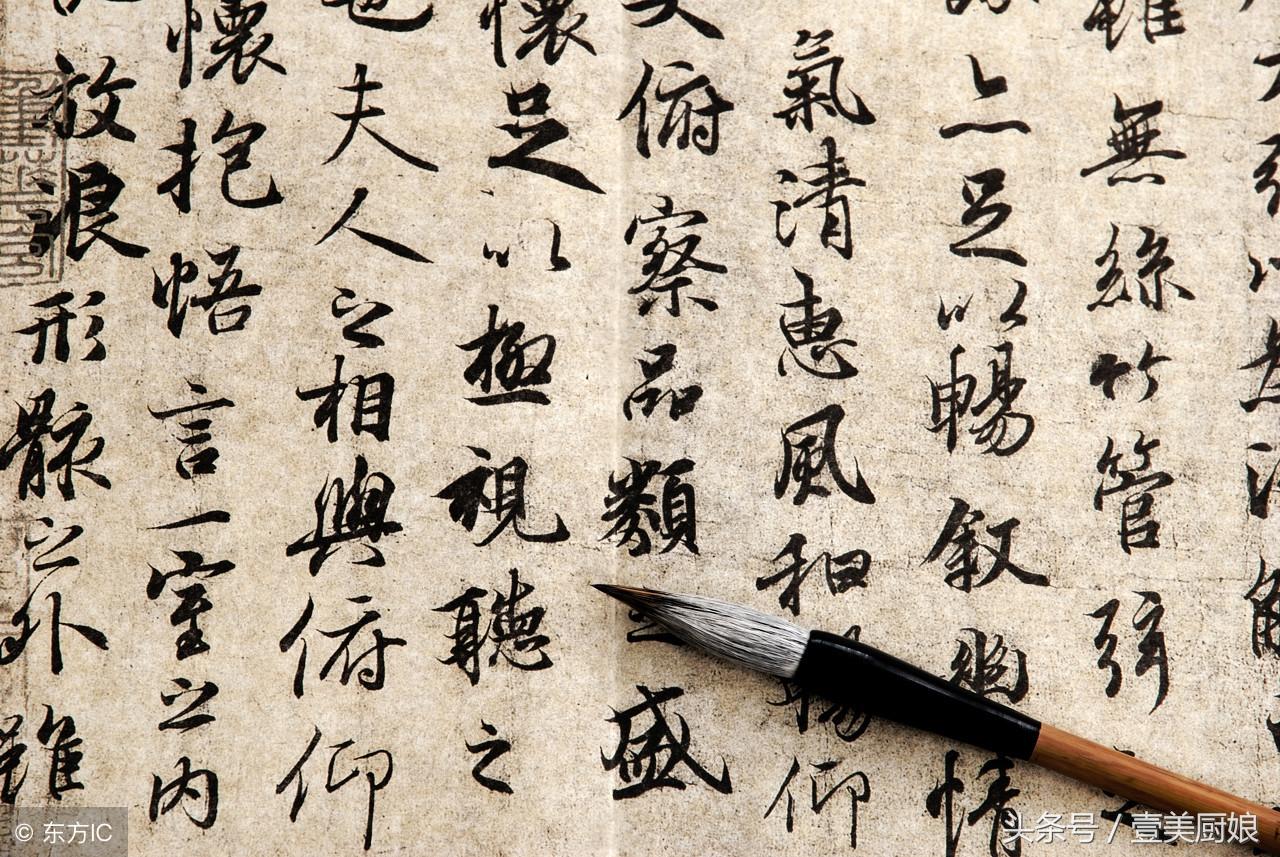 雖無絲竹管弦
詠亦足以暢叙幽情
氣清惠風和暢仰
大俯察品類之盛
懷足以極視聽之
也夫人之相與俯仰
懷抱悟言一室之内
放浪形骸之外雖
© 东方IC
头条号 / 壹美厨娘